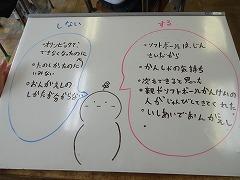 しない
する
・オリンピックで
できなくなったのに
・たのしかたのに
いみない
・おんがえしの
しかたが分からない
・ソフトボールは、じん
せいだから
・かんしゃの気持ち
・次もできると思った
・親やソフトボールかんけいの
人がじゅんびしてきてくれた
・いしあいでおんがえし